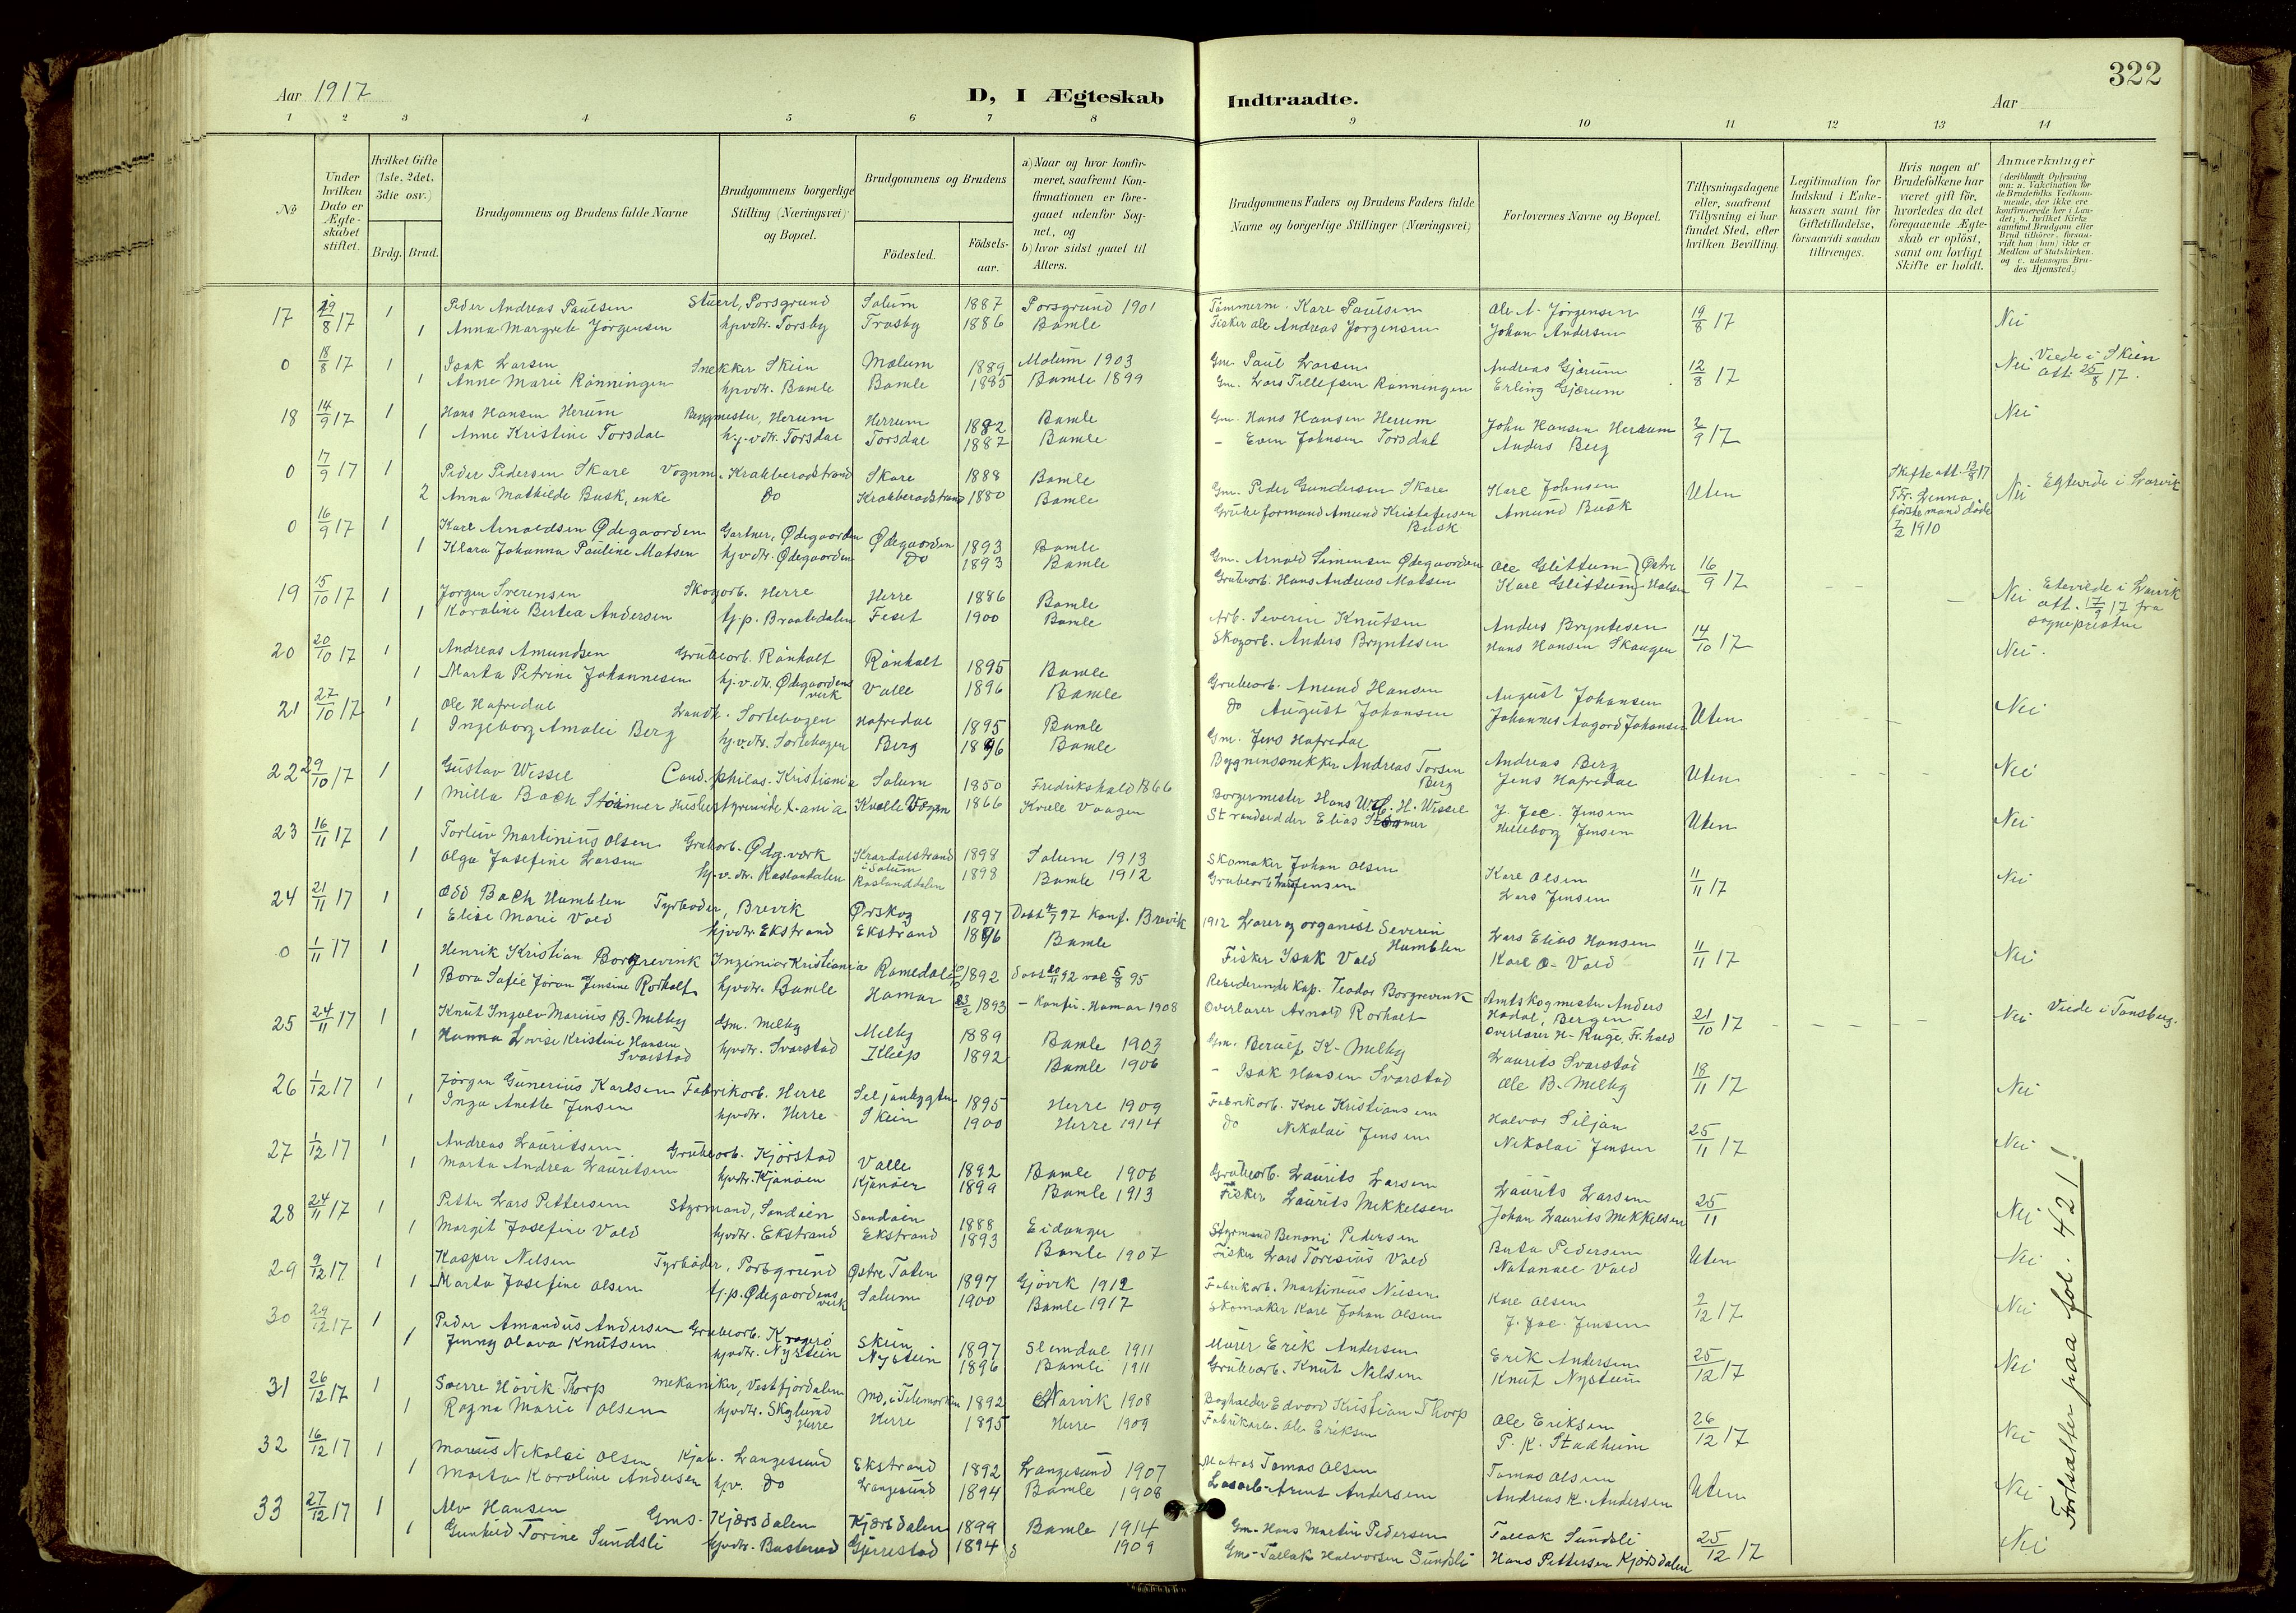 Aar 1917
D, I Ægteskab
Indtraadte.
Aar
322
1 2 3 4 5 6 7 8 9 10 11 12 13 14
№
Under hvilken Dato er Ægteskabet stiftet.
Hvilket Gifte (1ste, 2det, 3die osv.)
Brdg. Brud.
Brudgommens og Brudens fulde Navne
Brudgommens borgerlige Stilling (Næringsvei) og Bopæl.
Brudgommens og Brudens
Fødested.
Fødsels-aar.
a) Naar og hvor konfirmeret, saafremt Konfirmationen er foregaaet udenfor Sognet, og
b) hvor sidst gaaet til Alters.
Brudgommens Faders og Brudens Faders fulde Navne og borgerlige Stillinger (Næringsvei)
Forlovernes Navne og Bopæl.
Tillysningsdagene eller, saafremt Tillysning ei har fundet Sted, efter hvilken Bevilling.
Legitimation for Indskud i Enkekassen samt for Giftetilladelse, forsaavidt saadan tiltrænges.
Hvis nogen af Brudefolkene har været gift før, hvorledes da det foregaaende Ægteskab er opløst, samt om lovligt Skifte er holdt.
Anmerkninger
17 19/8 17 1 Peder Andreas Paulsen Stuert, Porsgrund Solum 1887 Porsgrund 1901 Tømmerm. Kare Paulsen Ole A. Jørgensen 19/8 17 Nei
1 Anna Margrete Jørgensen hjvdtr. Torsby Trosby 1886 Bamle Fisker Ole Andreas Jørgensen Johan Andersen
0 18/8 17 1 Isak Larsen Snekker Skien Mælum 1889 Mælum 1903 Gm. Paul Larsen Andreas Gjærum 12/8 17 Nei Viede i Skien att. 25/8 17.
1 Anne Marie Rønningen hjvdtr. Bamle Bamle 1885 Bamle 1899 Gm. Lars Tellefsen Rønningen Erling Gjærum
18 14/9 17 1 Hans Hansen Herum Bergmester, Herum Herrum 1882 Bamle Gm. Hans Hansen Herum John Hansen Herum 2/9 17 Nei
1 Anne Kristine Torsdal hj.v.dtr. Torsdal Torsdal 1887 Bamle - Even Johnsen Torsdal Anders Berg
0 17/9 17 1 Peder Pedersen Skare Vognm. Krabberødstrand Skare 1888 Bamle Gm. Peder Gundersen Skare Karl Johnsen Uten Nei Egtevide i Larvik
2 Anna Mathilde Busk, enke Do Krabberødstrand 1880 Bamle Grubeformand Amund Kristofersen Busk Amund Busk
første mand døde 7/2 1910
0 16/9 17 1 Karl Arnoldsen Ødegaarden Gartner, Ødegaarden Ødegaarden 1893 Bamle Gm. Arnold Simensen Ødegaarden Ole Glittum Østre 16/9 17
1 Klara Johanna Pauline Matsen hjvdtr. Ødegaarden Do 1893 Bamle Grubearb. Hans Andreas Matsen Karl Glittum Halsen
Nei Etevied i Larvik att. 17/9 17 fra sogneprestene
19 15/10 17 1 Jørgen Sverensen Skogarb. Herre Herre 1886 Bamle Arb. Severin Knutsen Anders Bryntesen 14/10 17 Nei.
1 Karoline Bertea Andersen tj.p. Braatedalen Feset 1900 Bamle Skogarb. Anders Bryntesen Hans Hansen Skaugen
20 20/10 17 1 Andreas Amundsen Grubearb. Rønholt Rønholt 1895 Bamle Grubearb. Amund Hansen August Johansen Uten Nei
1 Marta Petrine Johannesen hj.v.dtr. Ødegaardens verk Valle 1896 Bamle Do August Johansen Johannes Aagord Johansen
21 27/10 17 1 Ole Hafredal Landh. Sortebogen Hafredal 1895 Bamle Gm. Jens Hafredal Andreas Berg Uten Nei
1 Ingeborg Amalie Berg hj.v.dtr. Sortebogen Berg 1896 Bamle Bygningssnekker Andreas Torsen Berg Jens Hafredal
22 29/10 17 1 Gustav Wessel Cand. philos. Kristiania Solum 1850 Fredrikshald 1866 Borgermester Hans W. H. Wessel J. Jac. Jensen Uten Nei
1 Milla Bach Stømer Husbestyrerinde X.ania Kvelle Vogn 1866 Kvelle Vaagen Strandsidder Elias Stømer Helleborg Jensen
23 16/11 17 1 Torleiv Martinius Olsen Grubearb. Ødg. verk Krardalstrand i Solum 1898 Solum 1913 Skomaker Johan Olsen Karl Olsen 11/11 17 Nei
1 Olga Josefine Larsen hj.v.dtr. Raslandalen Raslanddalen 1898 Bamle 1912 Grubearb. Lars Jensen Lars Jensen
24 21/11 17 1 Odd Bach Humblen Fyrbøder, Brevik Ørskog 1897 Døbt 4/7 97 Konf. Brevik 1912 Lærer og organist Severin Humblen Lars Elias Hansen 11/11 17 Nei
1 Elise Marie Vold hjvdtr. Ekstrand Ekstrand 1896 Bamle Fisker Isak Vold Karl O. Vold
0 1/11 17 1 Henrik Kristian Borgrevink Ingeniør Kristiania Romedal 1892 døbt 20/11 92 vac 5/8 95 Residerende Kap. Teodor Borgrevink Amtskogmester Anders Hadal, Bergen 21/10 17 Nei Viede i Tønsberg.
1 Bora Sofie Joran Jensine Rorholt hjvdtr. Bamle Hamar 23/2 1893 - Konfir. Hamar 1908 Overlærer Arnold Rorholt Overlærer H. Ruge, Fr.hald
25 24/11 17 1 Knut Ingolv Marius B. Melby Gm. Melby Melby 1889 Bamle 1903 Gm. Berulf K. Melby Laurits Svarstad 18/11 17 Nei
1 Hanna Lovise Kristine Hansen Svarstad hjvdtr. Svarstad Kleep 1892 Bamle 1906 - Isak Hansen Svarstad Ole B. Melby
26 1/12 17 1 Jørgen Gunerius Karlsen Fabrikarb. Herre Seljanbygden 1895 Herre 1909 Fabrikarb. Karl Kristiansen Halvor Siljan 25/11 17 Nei
1 Inga Anette Jensen hjvdtr. Herre Skien 1900 Herre 1914 Do Nikolai Jensen Nikolai Jensen
27 1/12 17 1 Andreas Lauritsen Grubearb. Kjørstad Valle 1892 Bamle 1906 Grubearb. Laurits Larsen Laurits Larsen 25/11 Nei
1 Marta Andrea Lauritsen hjvdtr. Kjønøen Kjønøen 1899 Bamle 1913 Fisker Laurits Mikkelsen Johan Laurits Mikkelsen
28 24/11 17 1 Petter Lars Pettersen Styrmand, Sandøen Sandøen 1888 Eidanger Styrmand Benoni Pedersen Berta Pedersen Uten Nei
1 Margit Josefine Vold hjvdtr. Ekstrand Ekstrand 1893 Bamle 1907 Fisker Lars Toresius Vold Natanael Vold
29 9/12 17 1 Kasper Nilsen Fyrbøder, Porsgrund Østre Toten 1897 Gjøvik 1912 Fabrikarb. Martinius Nilsen Karl Olsen 9/12 17 Nei
1 Marta Josefine Olsen tj.p. Ødegaardens verk Solum 1900 Bamle 1917 Skomaker Karl Johan Olsen J. Jac. Jensen
30 29/12 17 1 Peder Amandus Andersen Grubearb. Kragerø Skien 1897 Slemdal 1911 Murer Erik Andersen Erik Andersen 25/12 17 Nei
1 Jenny Olava Knutsen hjvdtr. Nystein Nystein 1896 Bamle 1911 Grubearb. Knut Nilsen Knut Nystein
31 26/12 17 1 Sverre Høvik Thorp Mekaniker, Vestfjordalen Mo, i Telemarken 1892 Narvik 1908 Boghalder Edvard Kristian Thorp Ole Eriksen 26/12 17 Nei
1 Ragna Marie Olsen hjvdtr. Skoglund Herre Herre 1895 Herre 1909 Fabrikarb. Ole Eriksen P. K. Stadheim
32 16/12 17 1 Marius Nikolai Olsen Kjøb. Langesund Ekstrand 1892 Langesund 1907 Matros Tomas Olsen Tomas Olsen Uten Nei
1 Marta Karoline Andersen hjv. Do Langesund 1894 Bamle 1908 Losarb. Arnt Andersen Andreas K. Andersen
33 27/12 17 1 Alv Hansen Gms. Kjørsdalen Kjørsdalen 1899 Bamle 1914 Gm. Hans Martin Pedersen Tallak Sundsli 25/12 17 Nei
1 Gunhild Torine Sundsli hjvdtr. Basterud Gjerrestad 1894 1909 Gm. Tallak Halvorsen Sundsli Hans Pettersen Kjørsdalen
Fortsatter paa fol. 421!